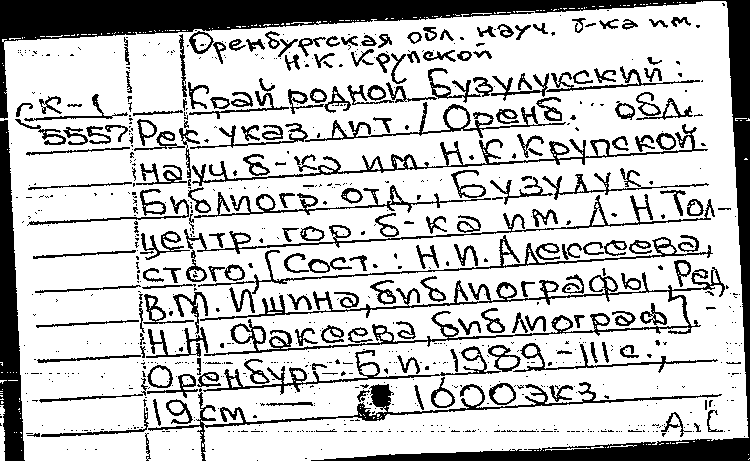 Оренбургская обл. науч. б-ка им.
Н.К. Крупской
Край родной Бузулукский:
СК-1
5557
Рек. указ. лит. / Оренб. обл.
науч. б-ка им. Н.К. Крупской.
Библиогр. отд., Бузулук.
центр. гор. б-ка им. Л.Н. Тол-
стого; [Сост.: Н.И. Алексеева,
В.М. Ишина, библиографы; Ред.
Н.Н. Факеева, библиограф]. -
Оренбург: Б.и., 1989. - 111 с.;
19 см. — 1600 экз.